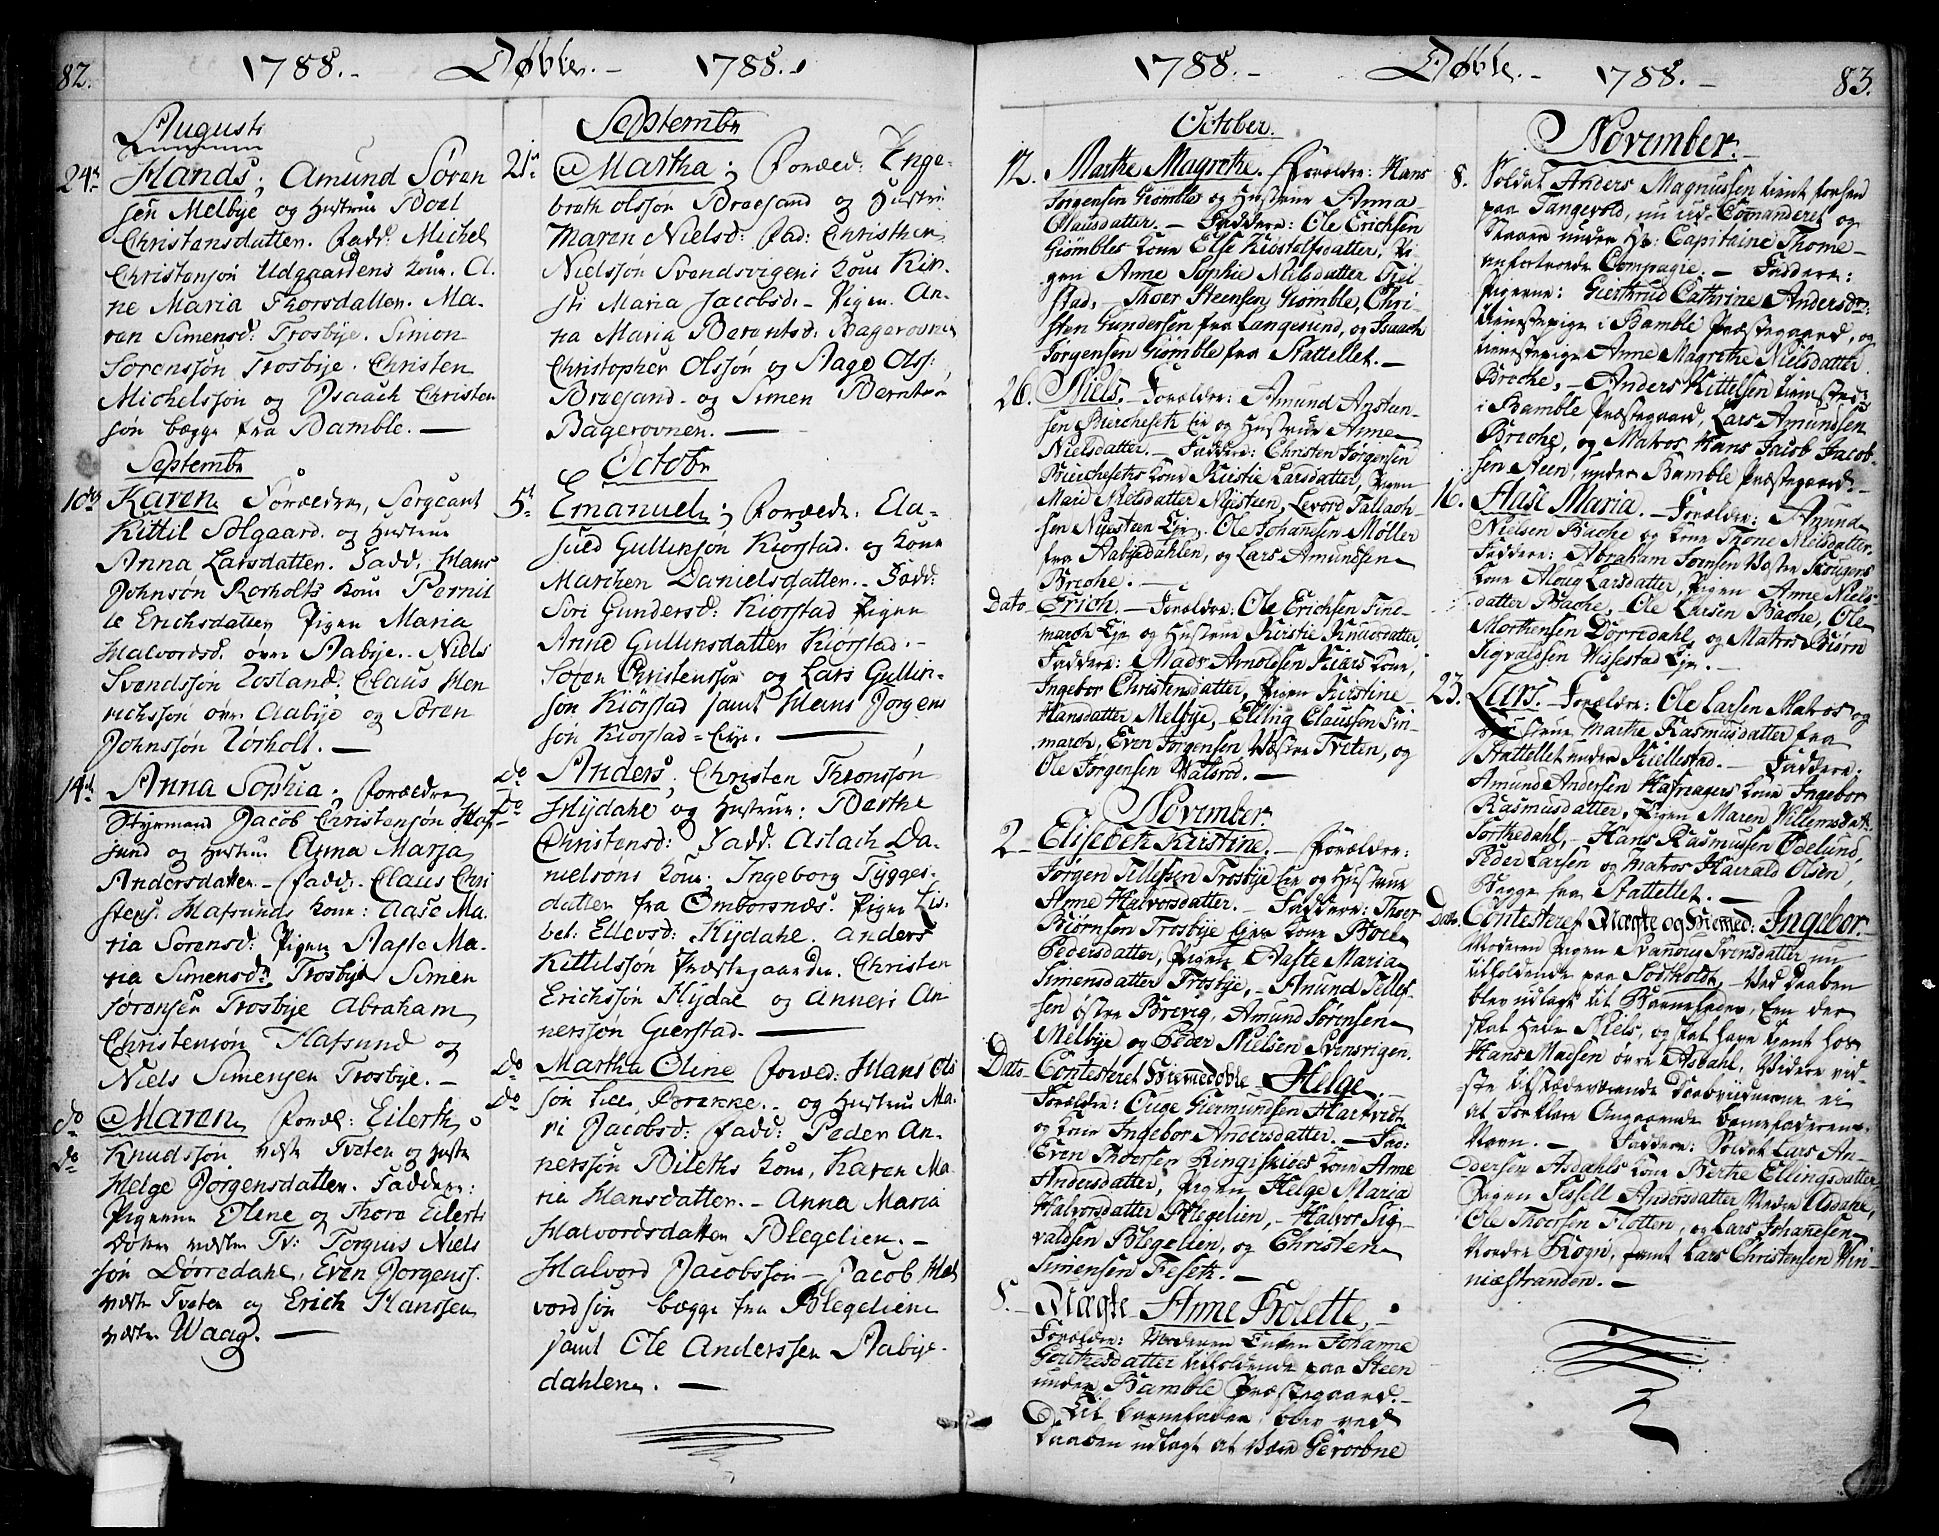 82. 1788. Døbte. 1788.
Augusti
24de Hands; Amund Søren
sen Melbye og Hustrue Boel
Christensdatter. fadd: Michel
Christensøn Udgaardens kone. A
ne Maria Thorsdatter. Ma-
ren Simensd: Trosbye. Simon
Sorenssøn Trosbye. Christen
Michelssøn og Isaach Christen
søn begge fra Bamble.
Septembr
10de Karen Foræeldre, Sergeant
Kittil Solgaard og Hustrue
Anna Larsdatter. Fadd. Hans
Johnsøn Rorholts kone Pernil
le Erichsdatter Pigen Maria
Halvordsd. øvre Aabye. Niels
Svendssøn Rosland. Claus Hen
richssøn øvre Aabye og Søren
Johnssøn Rørholt.
14de Anna Sophia; foræeldre
Styrmand Jacob Christensøn Haf-
sund og Hustrue Anna Marja
Andersdatter. fadd. Claus Chri
stens: Hafsunds kone: Aase Ma-
ria Sorensd: Pigen Aaste Ma-
ria Simensdr Trosbye Simen
Sørensen Trosbye Abraham
Christensøn Hafsund og
Niels Simensen Trosbye.
do do Maren foræl: Eilerth
Knudssøn vestre Tveten og Hustr
Helge Jorgensdatter. Faddere:
Pigerne Olene og Thore Eilerts
Døttre vestre Tv: Torguus Niels
søn Dørredahl, Even Jorgenss.
vestre Tveten og Erich Hanssen
vestre Waag.
Septembr
21de Martha; foræeld: Enge-
breth Olssøn Bræsand og Hustru
Maren Nielsd: fad: Christhen
Nielssøn Svendsvigens kone Kir-
sti Maria Jacobsd. Pigen An-
na Maria Berentsd: Bagerovnen
Christopher Olssøn og Aage Olss:
Bræsand og Simen Berntsøn
Bagerovnen.
Octobr
5te Emanuel; foræeldr: Ela-
sued Gullinsøn Kiorstad og kone
Marchen Danielsdatter. Fadd:
Siri Gundersd: Kiorstad Pigen
Anne Gullinsdatter Kiorstad.
Søfen Christenssøn og Lars Gullin-
søn Kiørstad samt Hans Jorgens
søn Kiorstad Eye.
do do Anders; Christen Thronssøn
Hydahl og Hustrue: Barthe
Christensd: Fadd: Aslach Da-
nielsøns kone: Ingeborg Tygges-
datter fra Omborsnæs. Pigen Lis-
bet: Ellevsd: Hydahl. Anders
Kittilssøn Præstegaarden. Christen
Erichssøn Hydal og Anners An
nerssøn Gierstad.
do do Martha Oline foræed: Hans Ols
søn lille Brekke. og Hustrue Ma-
ri Jacobsd: fadd: Peder An-
nerssøn Bileths kone, Karen Ma-
ria Hansdatter. Anna Maria
Halvordsdatter Blegelien.
Halvord Jacobssøn Jacob Hal
vordsøn begge fra Blegelien
samt Ole Anderssen Aabye-
dahlen.
1788. Døbte. 1788. 83.
October.
12. Marthe Magrethe. Forældre: Hans
Jørgensen Giømble og Hustrue Anna
Clausdatter. Faddere: Ole Erichsen
Giømbles kone Else Kiustolfsdatter. Pi-
gen Anne Sophie Nilsdatter
stad. Thoer Steensen Giømble, Chri-
sten Gundersen fra Langesund, og Isaach
Jørgensen Giømble fra Stattellet.
26. Niels. Forældre: Amund Anstan-
sen Bierchesetr Eie og Hustrue Anne
Nielsdatter. Faddere: Christen Jørgensen
Bircheseths kone Kirstie Larsdatter, Pigen
Mari Nielsdatter Nysteen, Levord Tallach-
sen Nysteen Eje. Ole Johansen Møller
fra Aabyedahlen, og Lars Amundsen
Breche.
Dato Erich. Forældre: Ole Erichsen Find-
march Eje og Hustrue Kirstie Knudsdatter.
Faddere: Mads Arnoldsen Kiærs kone,
Ingebor Christensdatter, Pigen Kirstine
Hansdatter Melbye, Elling Claussen Fin-
march, Even Jørgensen Vestre Tveten, og
Ole Jørgensen Valsrød.
November.
2 Elisebeth Kirstine. Forældre:
Jørgen Tellefsen Trosbye Eie og Hustrue
Anne Halvorsdatter. Faddere: Thoer
Biørnsen Trosbye Ejes kone Boel
Pedersdatter, Pigen Aaste Maria
Simensdatter Trosbye, Amund Tellef-
sen østre Brevig, Amund Sørensen
Melbye og Peder Nielsen Svinsvigen.
Dato Confesteret Hiemedøbte Helge.
Forældre: Ouge Giermundsen Hartvidt
og kone Ingebor Andersdatter. Fad:
Even Thoersen Ringsrises kone Anne
Andersdatter, Pigen Helge Maria
Halvorsdatter Blegelien, Halvor Sig-
valdsen Blegelien, og Christen
Simensen Feseth.
8. Uægte Anne Bolette,
Forældre: Moderen Enken Johanne
Gouthesdatter tilholdende paa Steen
under Bamble Præstegaard.
Til barnefader, blev ved
Daaben udlagt at være Gevorbne
November.
8. Soldat Anders Magnussen tient forhen
paa Tangevold, nu ud-Commanderet og
staaer under Hr: Capitaine Thome-
anfortroede Compagie. Faddere:
Pigerne: Giertrud Cathrine Andersdr:
tienstepige i Bamble Præstegaard, og
tienstepige Anne Magrethe Nielsdatter
Breche, Anders Kittelsen tienestedr:
i Bamble Præstegaard, Lars Amundsen
Breche, og Matros Hans Jacob Jacob-
sen Steen, under Bamble Præstegaard.
16. Aase Maria. Forældre: Amund
Nielsen Bache og kone Thone Nielsdatter.
Faddere: Abraham Iversen Vestre Skougens
kone Aloug Larsdatter, Pigen Anne Niels-
datter Bache, Ole Larsen Bache, Ole
Morthensen Dørredahl, og Matros Biørn
Sigvaldsen Vissestad Eje.
23. Lars. Forældre: Ole Larsen Matros og
Hustrue Marthe Rasmusdatter fra
Stattellet under Kiellestad. Faddere:
Amund Andersen Hafragers kone Ingebor
Rasmusdatter, Pigen Maren Willemsdatr.
Torthedahl, Hans Rasmussen Ødelund,
Peder Larsen og Matros Harrald Olsen,
Begge fra Stattellet.
Dato. Contesteret Uægte og Hiemed: Ingebor.
Moderen Pigen Svanoug Svensdatter nu
tilholdende paa Sødtholdt, Ved Daaben
blev udlagt til Barnefader, Een der
skal hede Niels, og skal have tient hos
Hans Madsen øvre Asdahl, Videre vid-
ste tilstædeværende Daabvidnerne ei
at Forklare Angaaende barnefaderens
Navn. Faddere: Soldat Lars An-
dersen Asdahls kone Berthe Ellingsdatter
Pigen Sissell Andersdatter Nedre Asdahl,
Ole Thoersen Flotten, og Lars Johannesen
Nordre Krogn, samt Lars Christensen Vin-
niæstranden.